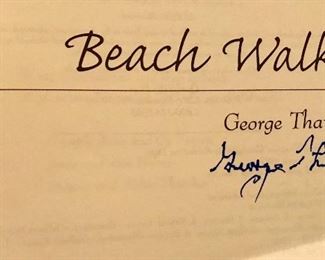 Beach Walk
George Tha
George